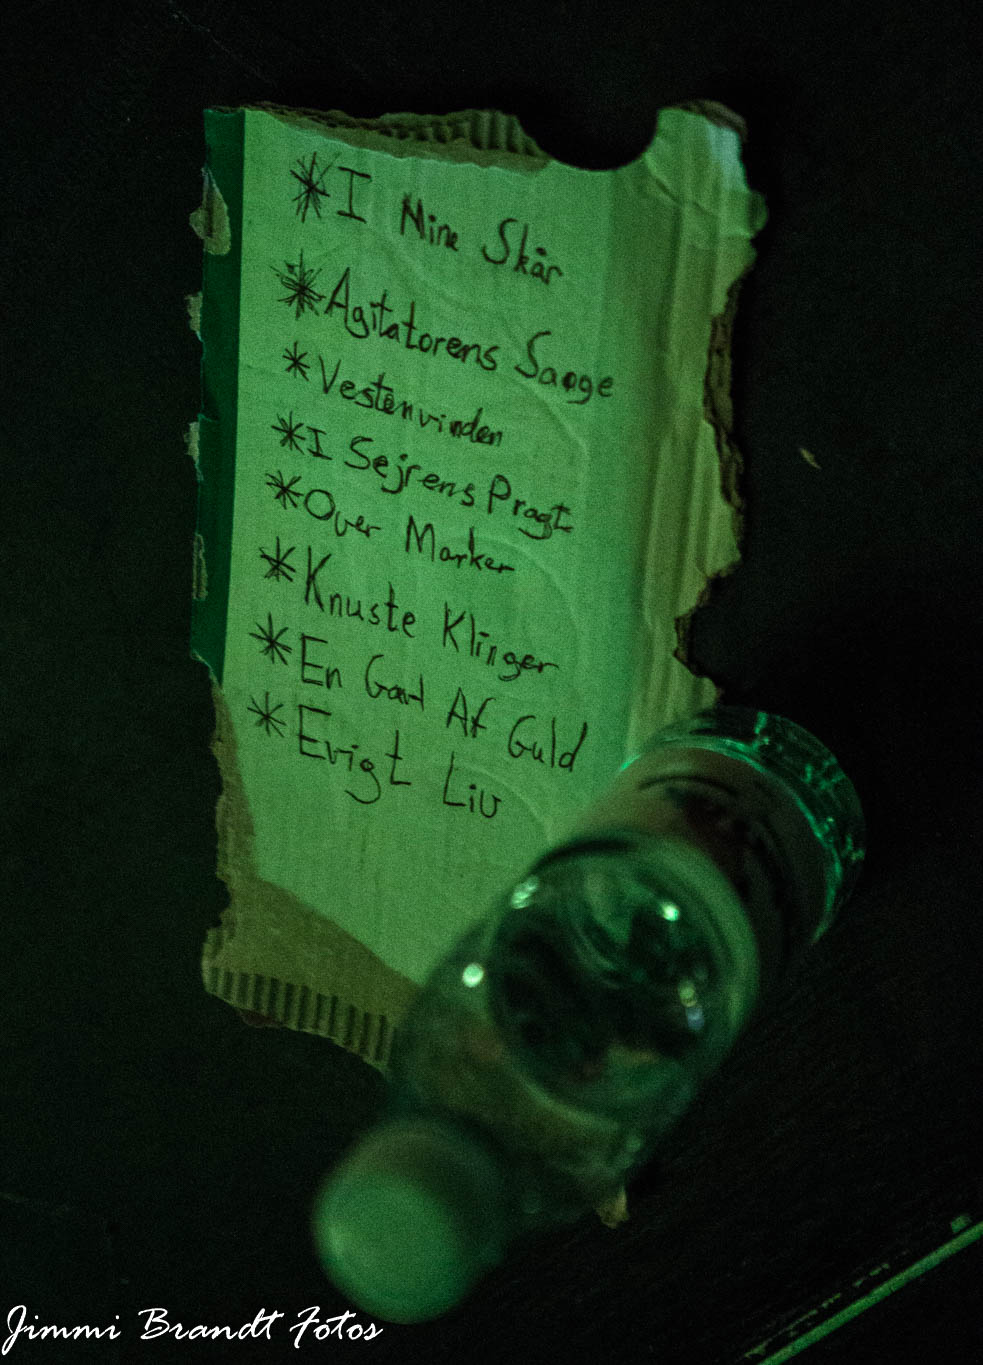 * I Mine Skår
* Agitatorens Saage
* Vestenvinden
* I Sejrens Pragt
* Over Marker
* Knuste Klinger
* En Gud Af Guld
* Evigt Liv
Jimmi Brandt Fotos